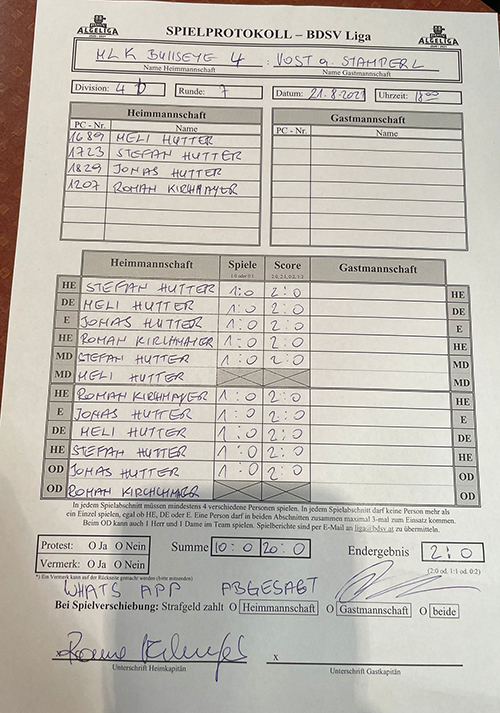 ALGELIGA
SPIELPROTOKOLL – BDSV Liga
ALGELIGA
MLK BULLSEYE 4 : VOST g. STAMPERL
Name Heimmannschaft Name Gastmannschaft
Division: 4 D Runde: 7 Datum: 21.8.2021 Uhrzeit: 18:00
Heimmannschaft Gastmannschaft
PC - Nr. Name PC - Nr. Name
1689 MELI HUTTER
1723 STEFAN HUTTER
1829 JONAS HUTTER
1207 ROMAN KIRCHMAYER
Heimmannschaft Spiele Score Gastmannschaft
1:0 oder 0:1 2:0, 2:1, 0:2, 1:2
HE STEFAN HUTTER 1:0 2:0 HE
DE MELI HUTTER 1:0 2:0 DE
E JONAS HUTTER 1:0 2:0 E
HE ROMAN KIRCHMAIER 1:0 2:0 HE
MD STEFAN HUTTER 1:0 2:0 MD
MD MELI HUTTER MD
HE ROMAN KIRCHMAYER 1:0 2:0 HE
E JONAS HUTTER 1:0 2:0 E
DE MELI HUTTER 1:0 2:0 DE
HE STEFAN HUTTER 1:0 2:0 HE
OD JONAS HUTTER 1:0 2:0 OD
OD ROMAN KIRCHMAIER OD
In jedem Spielabschnitt müssen mindestens 4 verschiedene Personen spielen. In jedem Spielabschnitt darf keine Person mehr als
ein Einzel spielen, egal ob HE, DE oder E. Eine Person darf in beiden Abschnitten zusammen maximal 3-mal zum Einsatz kommen.
Beim OD kann auch 1 Herr und 1 Dame im Team spielen. Spielberichte sind per E-Mail an liga@bdsv.at zu übermitteln.
Protest: O Ja O Nein Summe 10:0 20:0 Endergebnis 2:0
Vermerk: O Ja O Nein (2:0 od. 1:1 od. 0:2)
*) Ein Vermerk kann auf der Rückseite gemacht werden (bitte mitsenden)
WHATS APP ABGESAGT
Bei Spielverschiebung: Strafgeld zahlt O Heimmannschaft O Gastmannschaft O beide
x x
Unterschrift Heimkapitän Unterschrift Gastkapitän